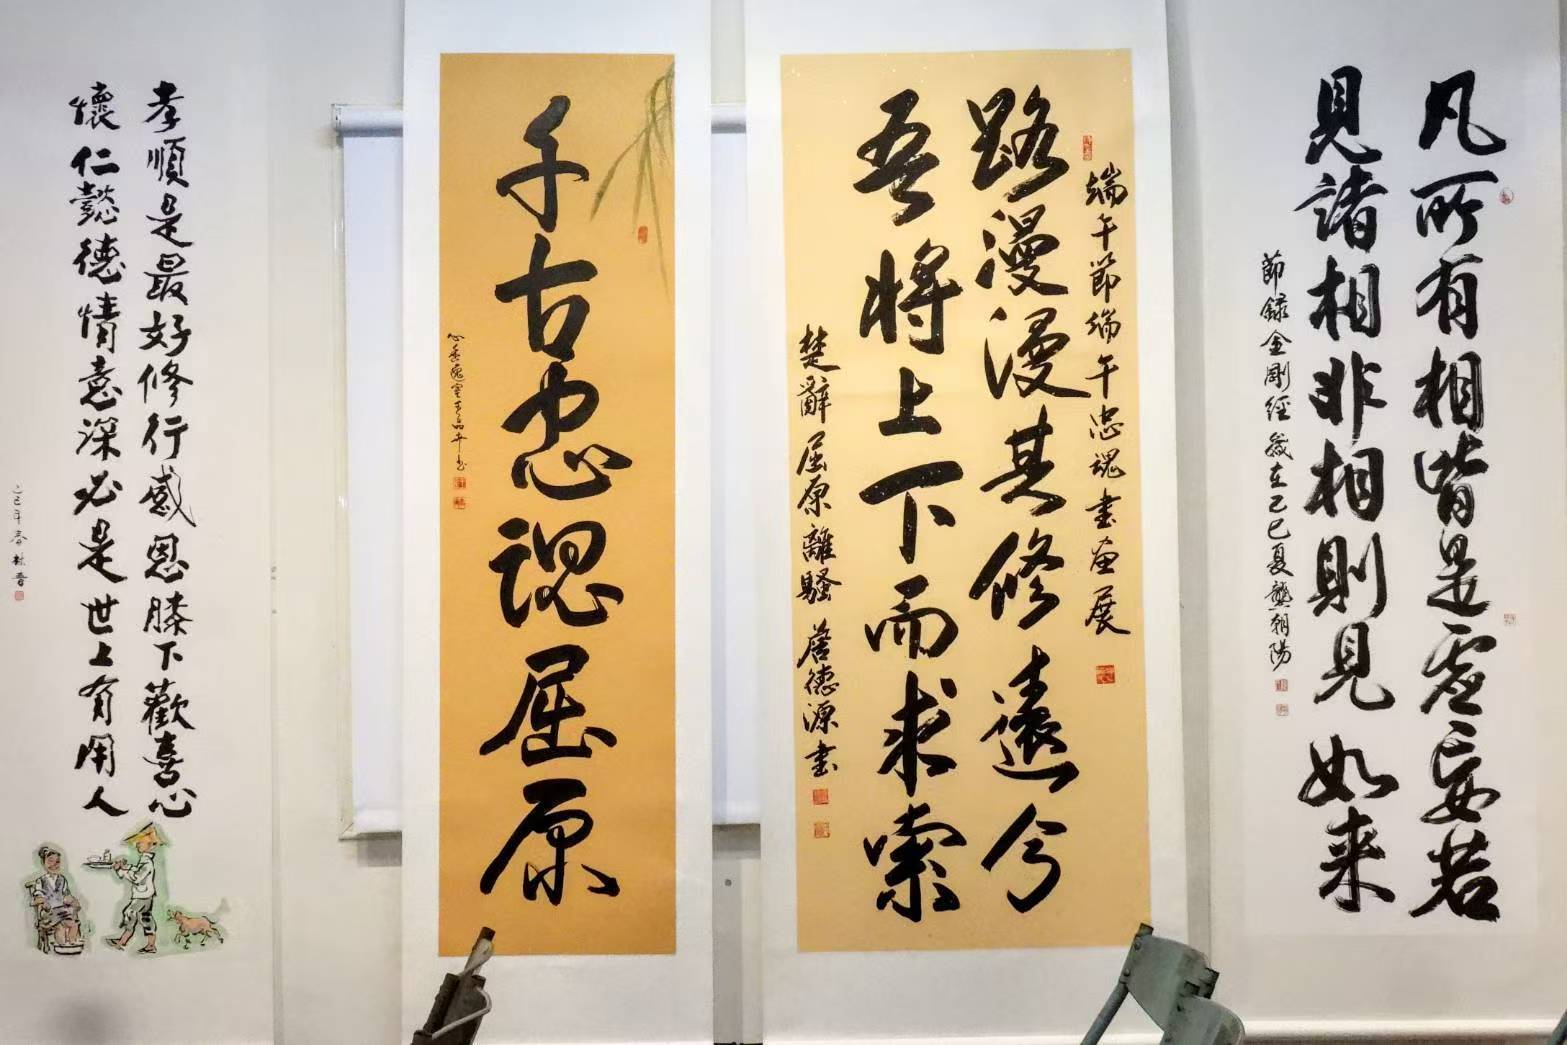 凡所有相皆是虛妄若
見諸相非相則見如来
節録金剛經歲在乙巳夏龔朝陽
端午節端午忠魂書画展
路漫漫其修遠兮
吾將上下而求索
楚辭屈原離騷 詹德源書
千古忠魂屈原
孝順是最好修行感恩膝下歡喜心
懷仁懿德情意深必是世上有用人
乙巳年春